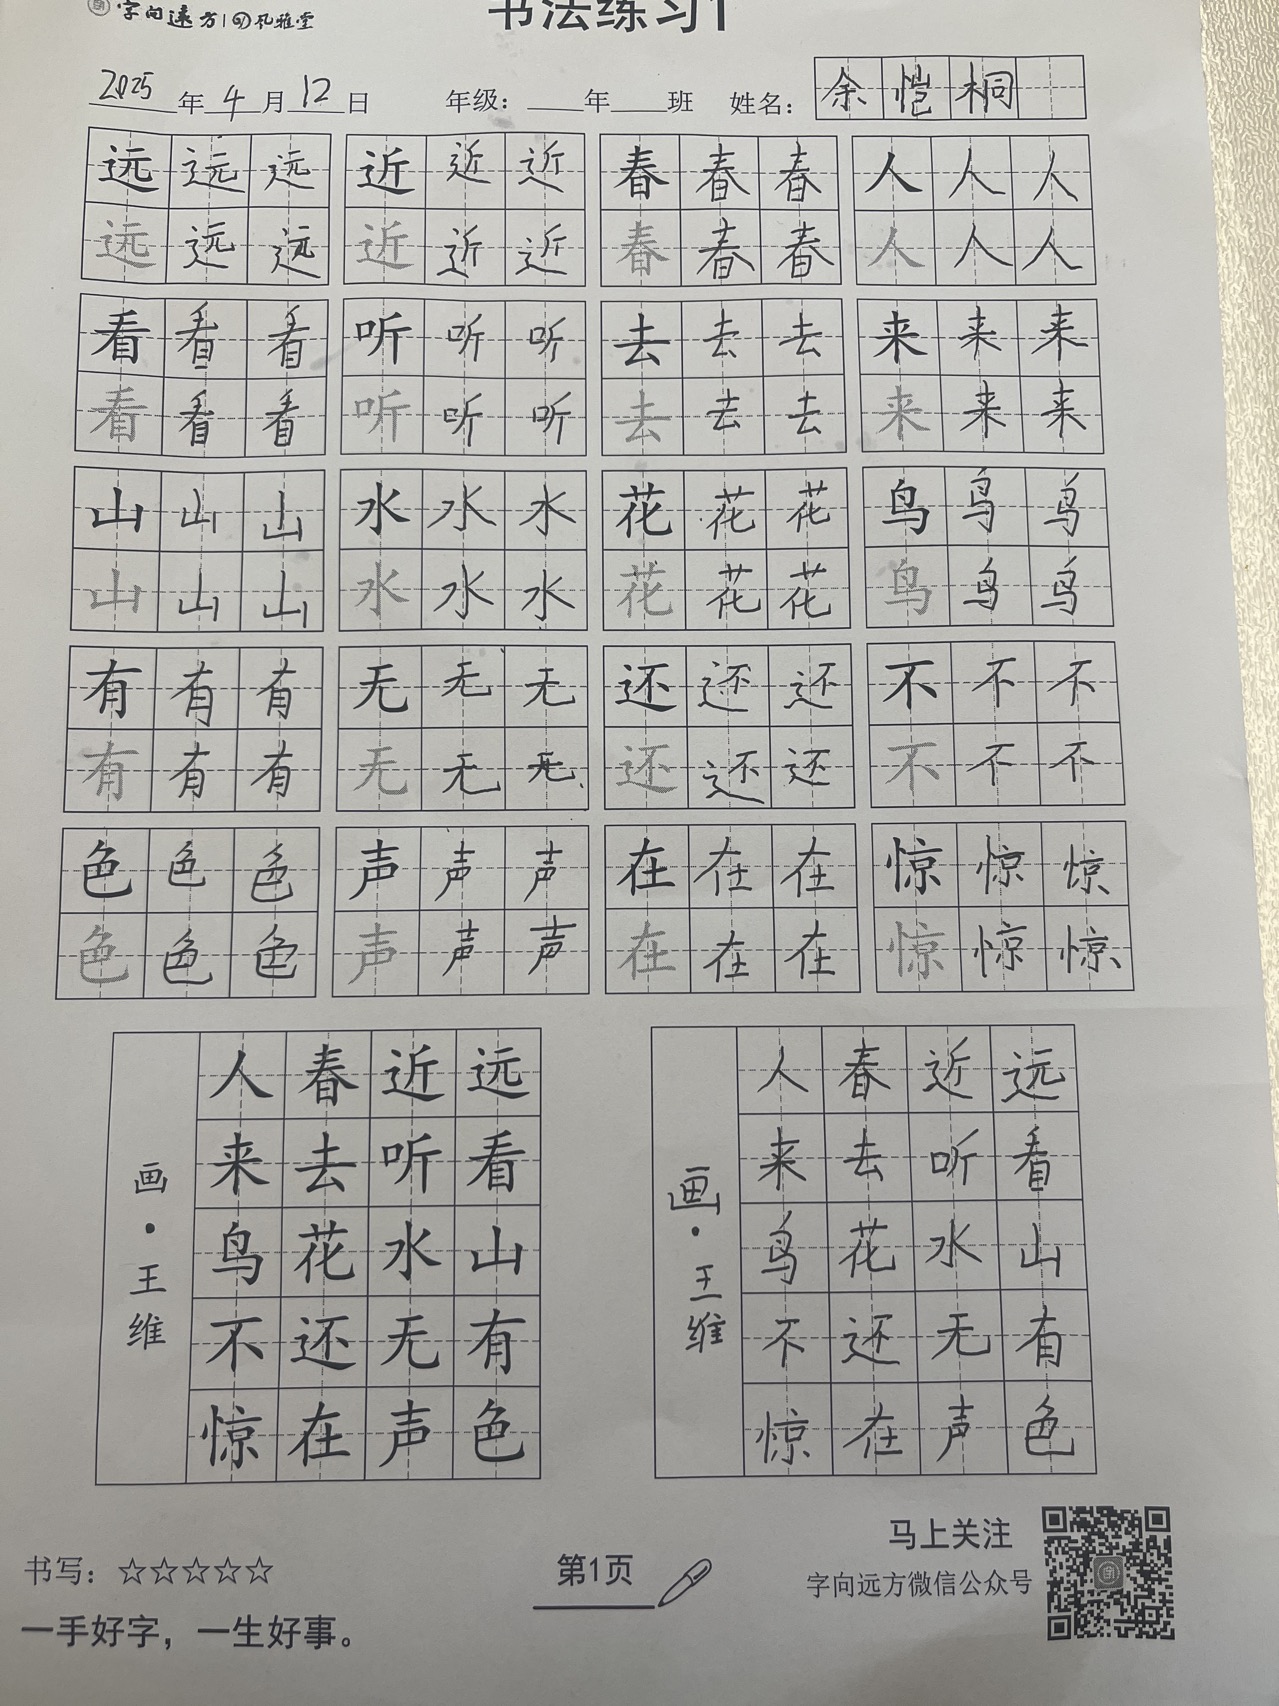 字向远方 | 孔雅堂
书法练习1
2025年4月12日 年级：___年___班 姓名：余恺桐
远远远 近近近 春春春 人人人
远远远 近近近 春春春 人人人
看看看 听听听 去去去 来来来
看看看 听听听 去去去 来来来
山山山 水水水 花花花 鸟鸟鸟
山山山 水水水 花花花 鸟鸟鸟
有有有 无无无 还还还 不不不
有有有 无无无 还还还 不不不
色色色 声声声 在在在 惊惊惊
色色色 声声声 在在在 惊惊惊
远看山有色
近听水无声
春去花还在
人来鸟不惊
画·王维
远看山有色
近听水无声
春去花还在
人来鸟不惊
画·王维
书写：☆☆☆☆☆
一手好字，一生好事。
第1页
马上关注
字向远方微信公众号